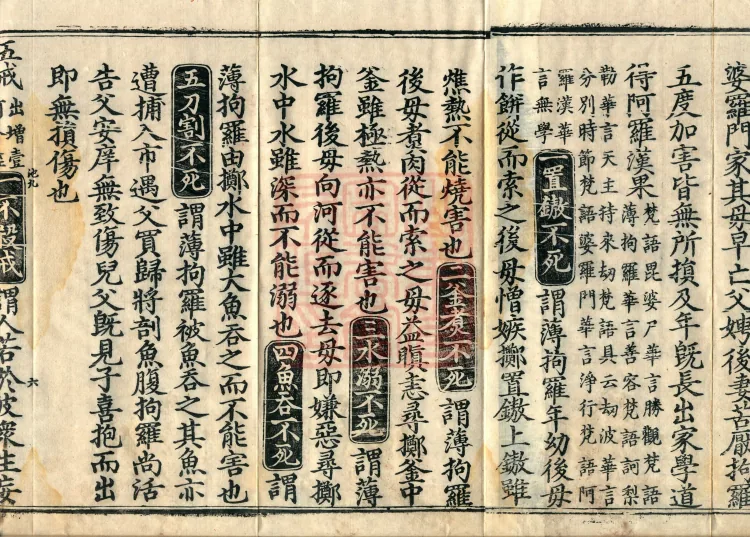 婆羅門家其母早亡父娉後妻苦厭拘羅
五度加害皆無所損及年既長出家學道
得阿羅漢果
梵語毘婆尸華言勝觀梵語
薄拘羅華言善容梵語訶梨
勒華言天主持來劫梵語具云劫波華言
分別時節梵語婆羅門華言淨行梵語阿
羅漢華
言無學
一置鏊不死謂薄拘羅年幼後母
作餅從而索之後母憎嫉擲置鏊上鏊雖
燋熱不能燒害也二釜煮不死謂薄拘羅
後母煮肉從而索之母益瞋恚尋擲釜中
釜雖極熱亦不能害也三水溺不死謂薄
拘羅後母向河從而逐去母即嫌惡尋擲
水中水雖深而不能溺也四魚吞不死謂
薄拘羅由擲水中雖大魚吞之而不能害也
五刀割不死謂薄拘羅被魚吞之其魚亦
遭捕入市遇父買歸將剖魚腹拘羅尚活
告父安庠無致傷兒父既見子喜抱而出
即無損傷也
池九
六
五戒出增壹一不殺戒謂人若於彼衆生妄